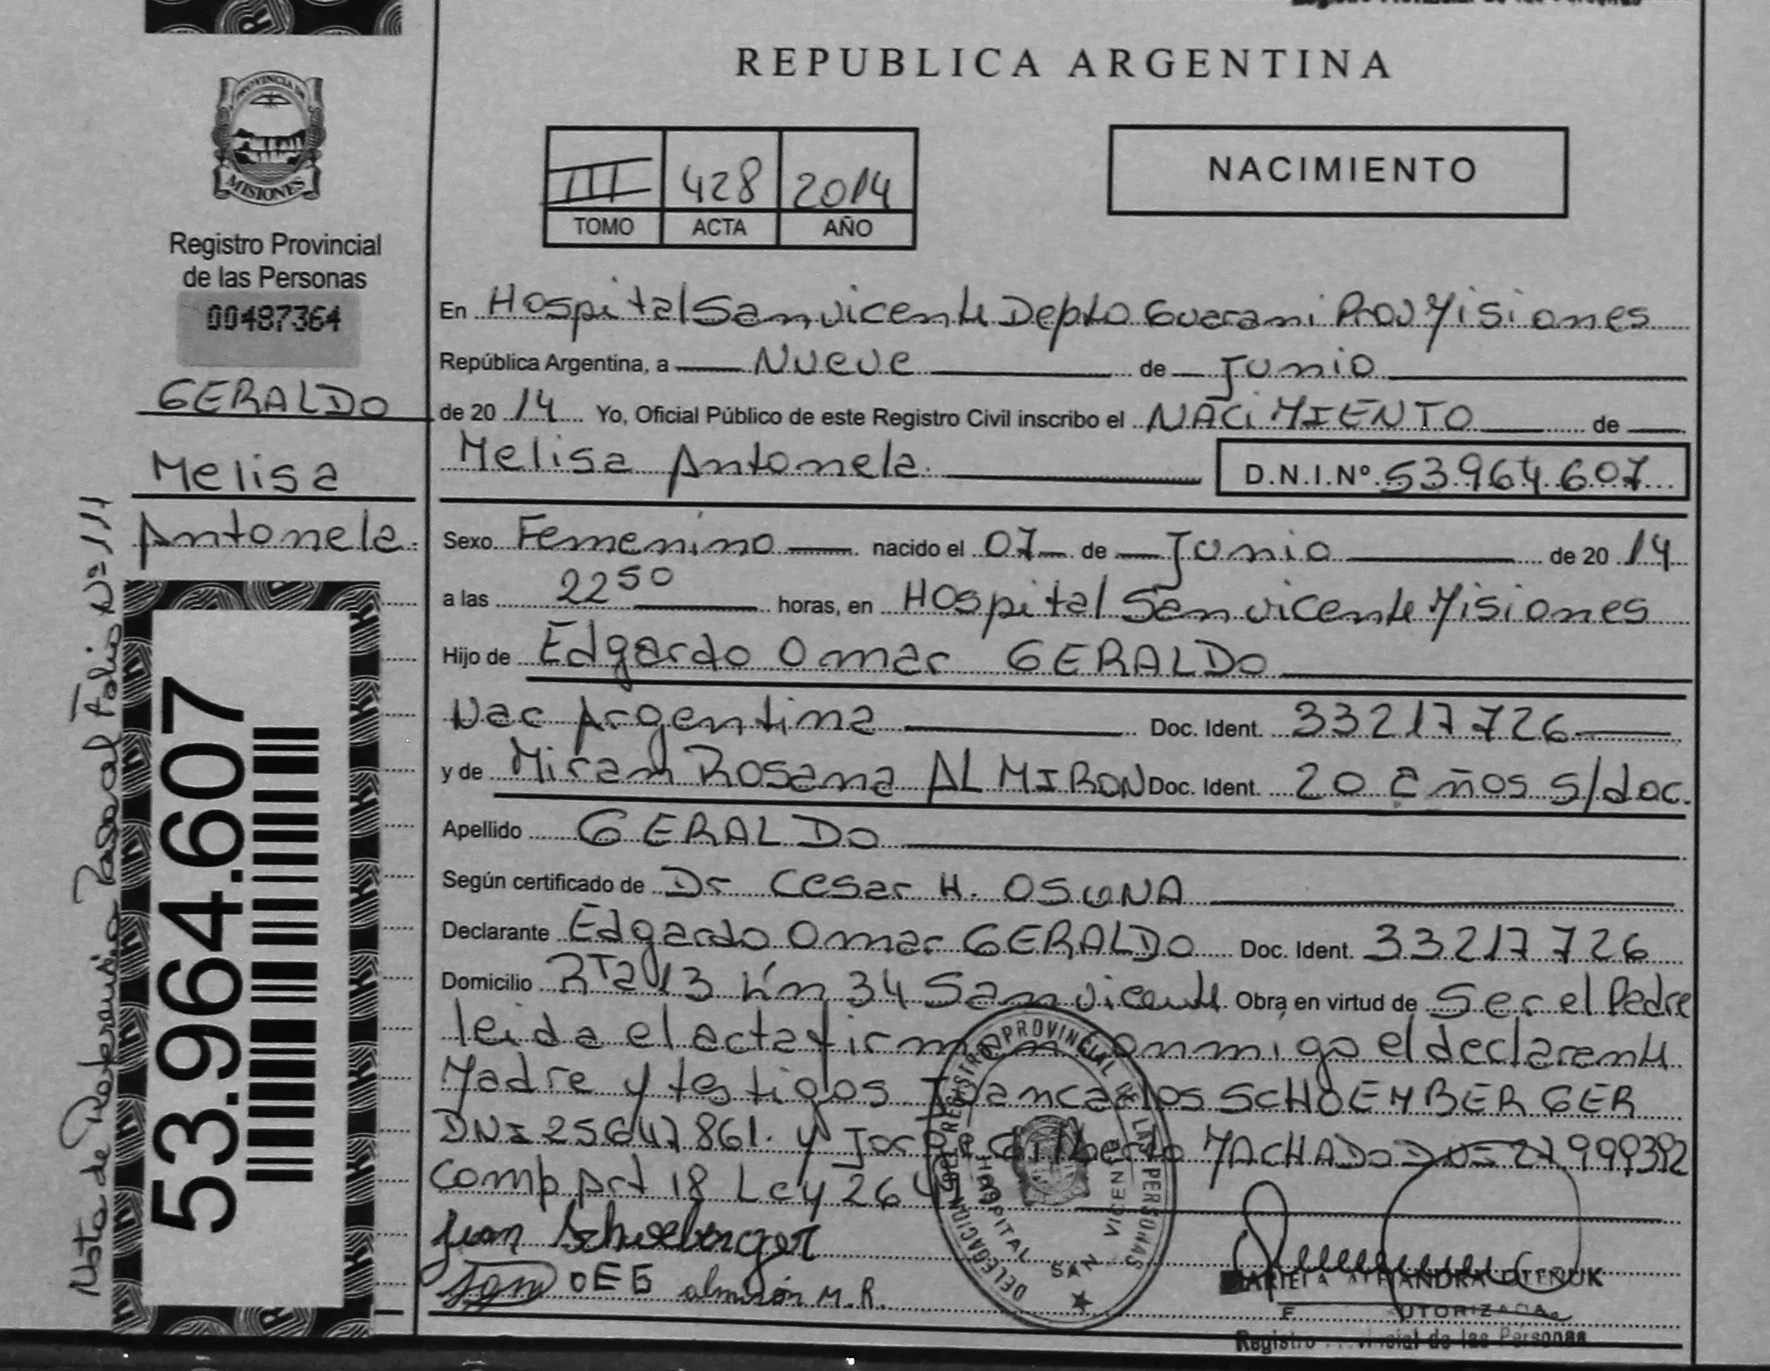 REPUBLICA ARGENTINA
PROVINCIA DE
MISIONES
Registro Provincial
de las Personas
00487364
GERALDO
Melisa
Antonela.
Nota de Folio Nº 111
53.964.607
III 428 2014
TOMO ACTA AÑO
NACIMIENTO
En Hospital San vicente Depto Guarani Prov Misiones
República Argentina, a Nueve de Junio
de 20 14 Yo, Oficial Público de este Registro Civil inscribo el NACIMIENTO de
Melisa Antonela. D.N.I.Nº 53.964.607
Sexo Femenino nacido el 07 de Junio de 20 14
a las 22 50 horas, en Hospital San vicente Misiones
Hijo de Edgardo Omar GERALDO
Nac Argentina Doc. Ident. 33217726
y de Miram Rosana ALMIRON Doc. Ident. 20 años s/doc.
Apellido GERALDO
Según certificado de Dr Cesar H. OSUNA
Declarante Edgardo Omar GERALDO Doc. Ident. 33217726
Domicilio RTa 13 km 34 San vicente Obra en virtud de Ser el Padre
leida el acta firman conmigo el declarante
Madre y testigos Juan carlos SCHOEMBERGER
DNI 25647861. y Jorge Gilberto MACHADO DNI 27999392
Comp Art 18 Ley
Juan
almirón M.R.
REGISTRO PROVINCIAL DE LAS PERSONAS
DELEGACION
HOSPITAL SAN VICENTE
Registro de las Personas